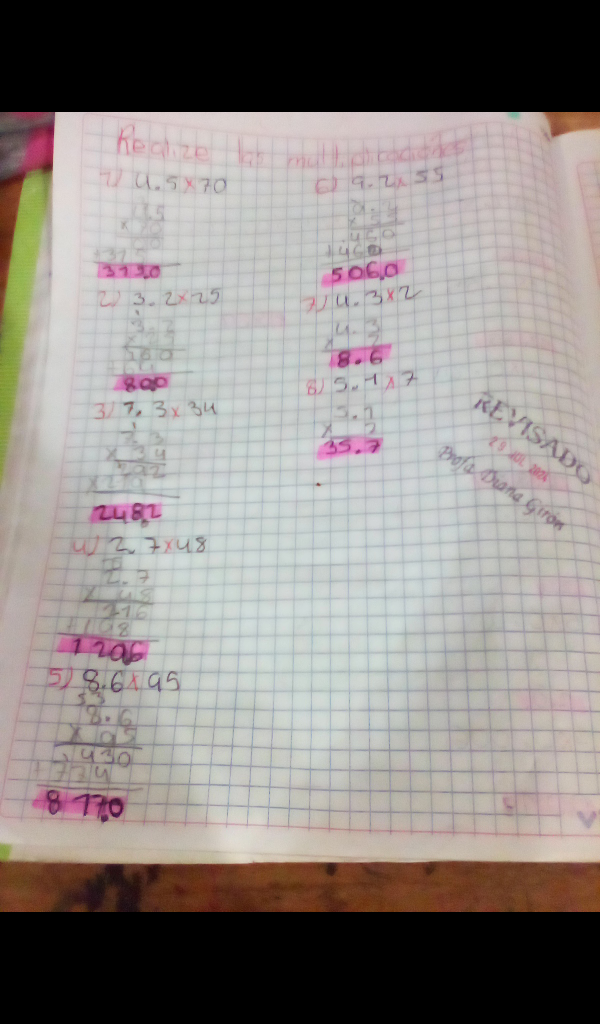 Realize las multiplicaciones
1) 4.5x70
x 70
00
313.0
2) 3.2x25
1
3.2
x 25
160
80.0
3) 7.3x34
1
7.3
x 34
292
x219
248.2
4) 2.7x48
2.7
x 48
216
+108
120.6
5) 8.6x95
5 3
8.6
x 95
430
+774
817.0
6) 9.2x55
460
+460
506.0
7) 4.3x2
4.3
x 2
8.6
8) 5.1x7
5.1
x 7
35.7
REVISADO
Profa. Diana Girón